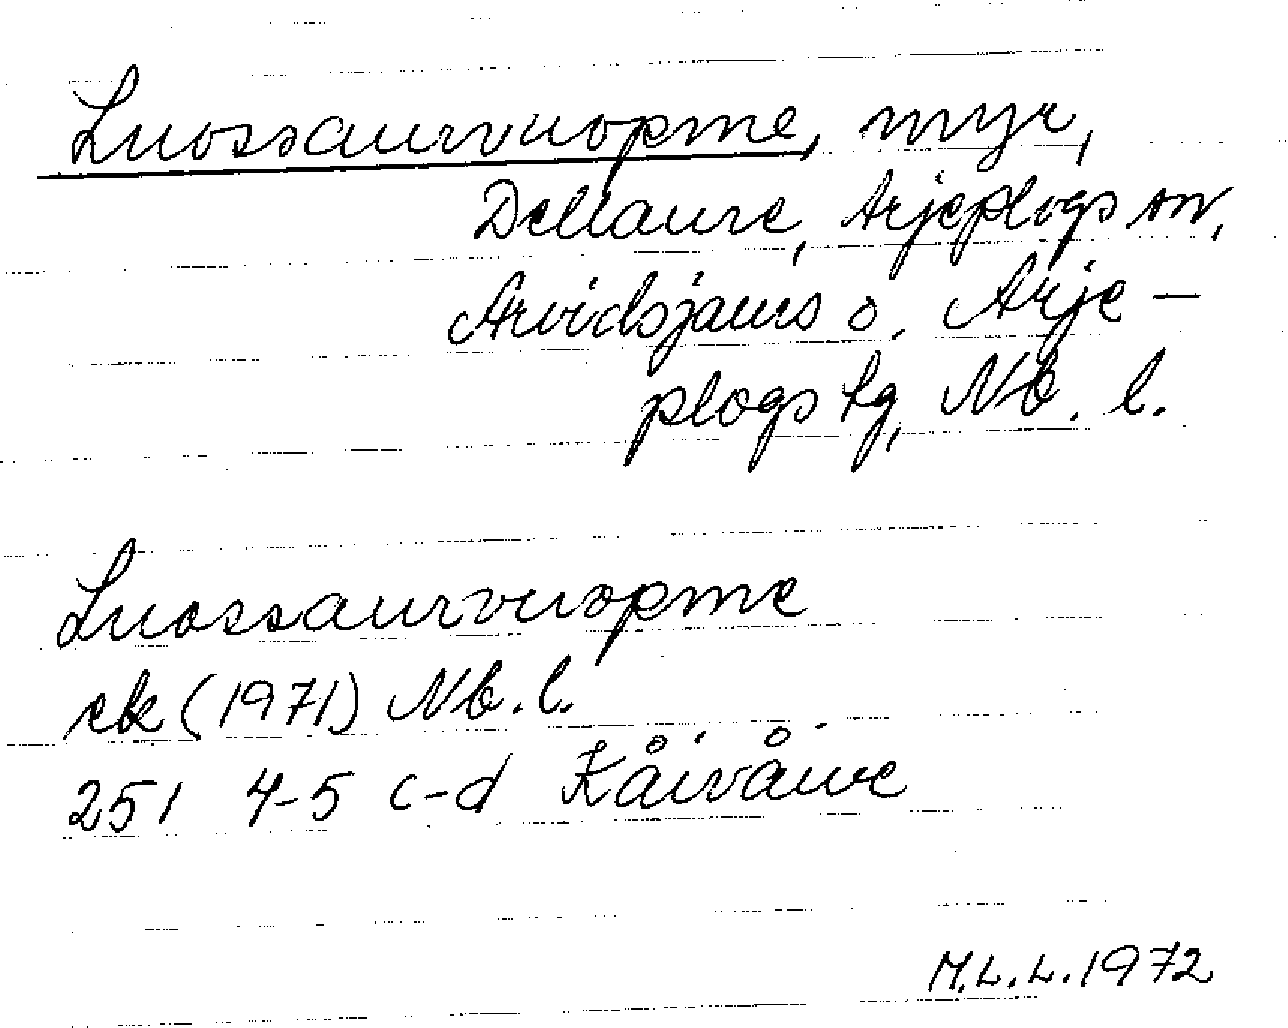 Luossaurvuopme, myr,
Dellaure, Arjeplogs sn,
Arvidsjaurs o. Arje-
plogs tg, Nb. l.
Luossaurvuopme
ek (1971) Nb. l.
251 4-5 c-d Kåivåure
M.L.L. 1972